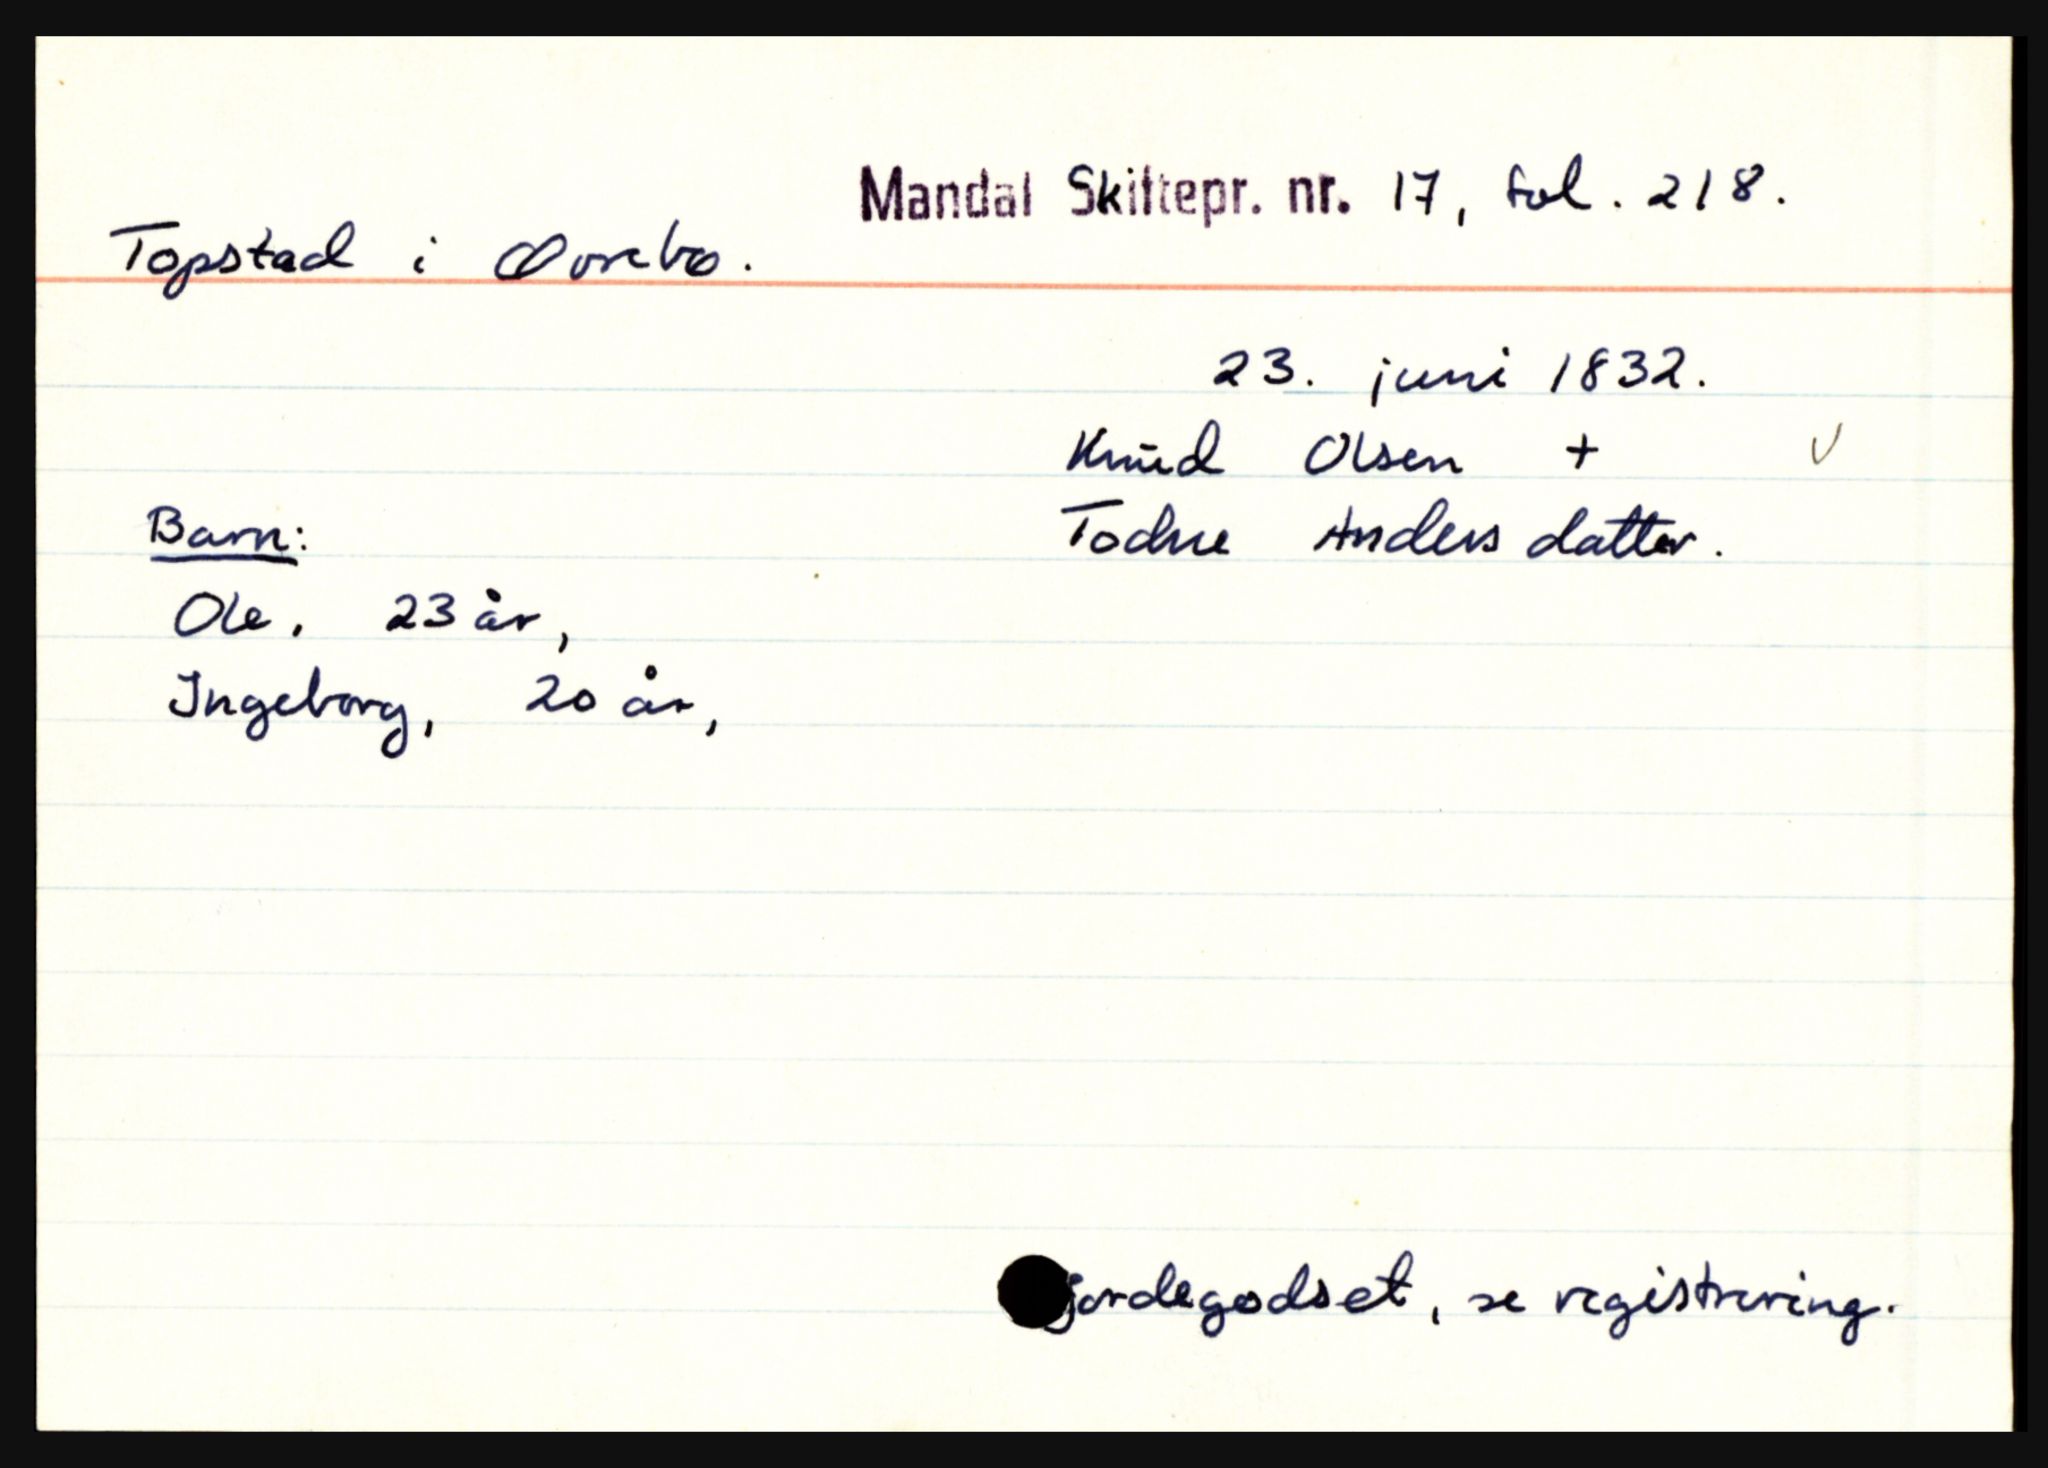 Mandal Skiftepr. nr. 17, fol. 218.
Topstad i Øvrebø.
23. juni 1832.
Knud Olsen + ✓
Todne Andersdatter.
Barn:
Ole, 23 år,
Ingeborg, 20 år,
jordegodset, se registrering.